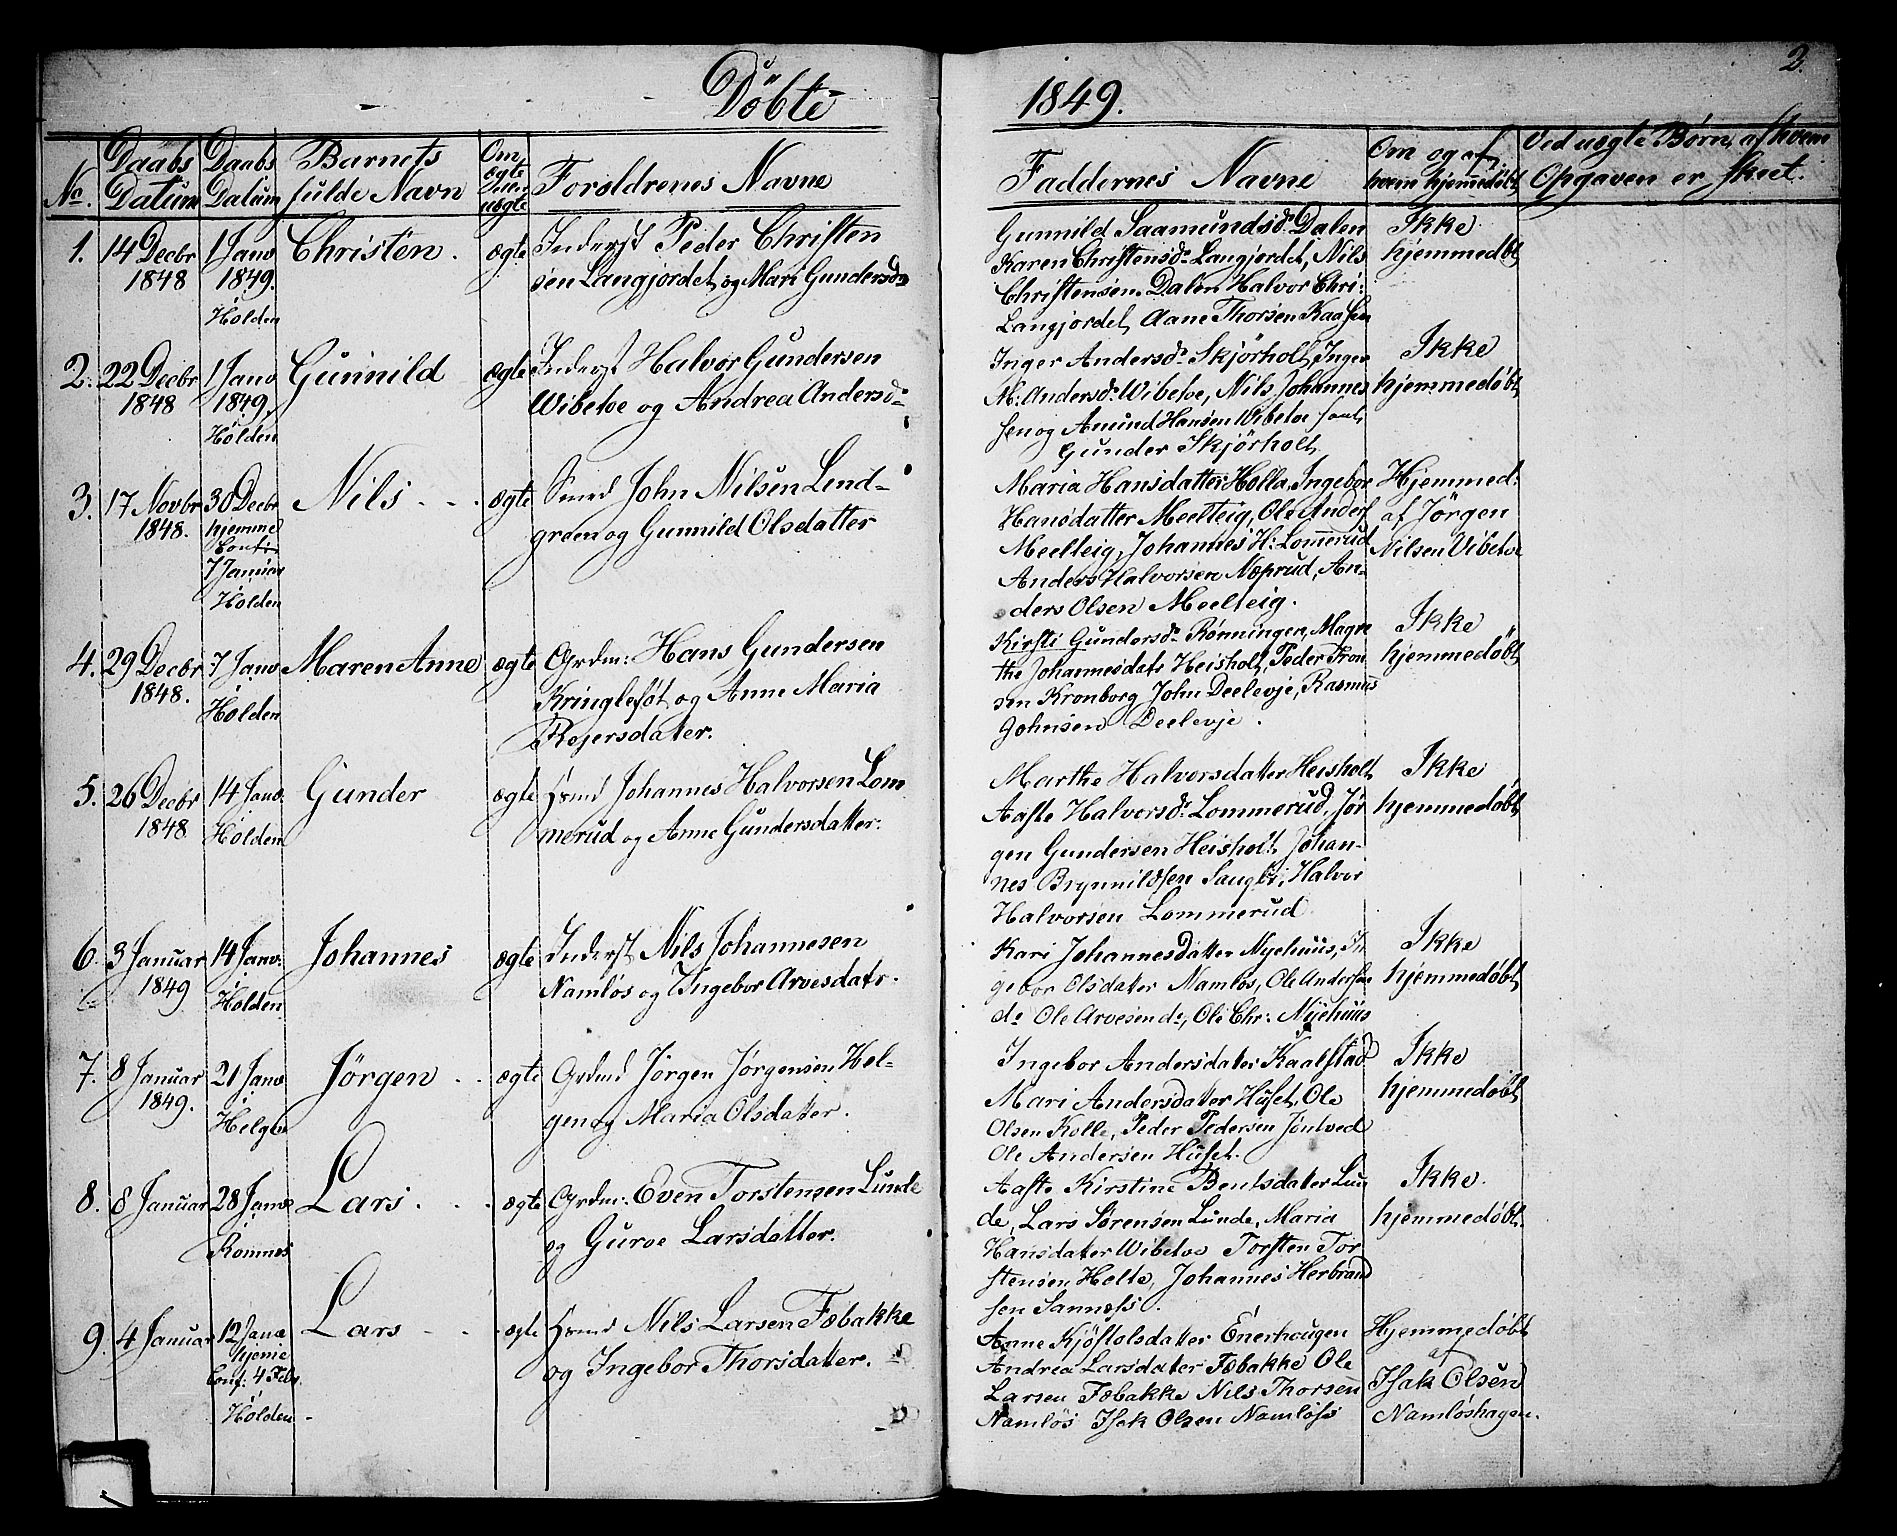 Döbte 1849. 2.
No. Daabs Datum Daabs Datum Barnets fulde Navn Om ægte eller uægte Forældrenes Navne Faddernes Navne Om og af hvem hjemmedøbt Ved uægte Børn, af hvem Opgaven er skeet.
1. 14 Decbr 1848 1 Janv 1849. Holden Christen. ægte Inderst Peder Christen
sen Langjordet og Mari Gundersd
Gunnild Saamundsd. Dalen
Karen Christensd. Langjordet, Nils
Christensen Dalen Halvor Chri:
Langjordet, Aane Thorsen Kaasen
Ikke
hjemmedøbt
2. 22 Decbr 1848 1 Janv 1849, Holden Gunnild ægte Inderst Halvor Gundersen
Wibetoe og Andrea Andersd
Inger Andersd. Skjörholt, Inger
M: Andersd. Wibetoe, Nils Johannes
sen og Amund Hansen Wibetoe samt
Gunder Skjörholt
Ikke
hjemmedøbt
3. 17 Novbr 1848. 30 Decbr hjemme 7 Januar Holden Nils ægte Smed John Nilsen Lend-
green og Gunnild Olsdatter
Maria Hansdatter Holla, Ingebor
Hansdatter Meelteig, Ole Anders
Meelteig, Johannes H: Lommerud
Anders Halvorsen Næprud, An-
ders Olsen Meelteig.
Hjemmed:
af Jörgen
Nilsen Vibetoe
4. 29 Decbr 1848. 7 Janv Holden Maren Anne ægte Grdm: Hans Gundersen
Kringlesöt og Anne Maria
Rejersdater.
Kirsti Gundersd. Rönningen, Magre
the Johannesdatr Heisholt, Peder Tron
sen Kronborg John Deelevje, Rasmus
Johnsen Deelevje.
Ikke
hjemmedøbt
5. 26 Decbr 1848 14 Janv Holden Gunder ægte Hsmd Johannes Halvorsen Lom
merud og Anne Gundersdatter.
Marthe Halvorsdatter Heisholt
Aaste Halvorsd. Lommerud, Jör
gen Gundersen Heisholt, Johan-
nes Brynnildsen Saugbö, Halvor
Halvorsen Lommerud
Ikke
hjemmedøbt
6. 3 Januar 1849 14 Janv. Holden Johannes ægte Inderst Nils Johannesen
Namlös og Ingebor Arvesdatr.
Kari Johannesdatter Nyehuus, In
gebor Olsdater Namlös, Ole Andersen
do Ole Arvesen do, Ole Chr: Nyehuus
Ikke
hjemmedøbt
7. 8 Januar 1849. 21 Janv Helgen Jörgen ægte Grdmd Jörgen Jörgensen Hel-
gen og Maria Olsdatter.
Ingebor Andersdater Kaalstad
Mari Andersdater Huset, Ole
Olsen Kolle, Peder Pedersen Jöntved
Ole Andersen Huset.
Ikke
hjemmedøbt
8. 8 Januar 28 Janv Romnes Lars. ægte Grdm: Even Torstensen Lunde
og Gurve Larsdatter.
Aaste Kirstine Bentsdater Lun
de, Lars Sörensen Lunde, Maria
Hansdater Wibetoe Torsten Tor
stensen Holte, Johannes Herbrand
sen Sannæss.
Ikke.
hjemmedøbt.
9. 4 Januar 12 Janv hjeme Conf: 4 Febr. Holden Lars ægte Hsmd Nils Larsen Fæbakke
og Ingebor Thorsdater.
Anne Kjöstolsdatter Enerhougen
Andrea Larsdater Fæbakke Ole
Larsen Fæbakke Nils Thorsen
Namlös Isak Olsen Namløss
Hjemmedøbt
af
Isak Olsen
Namloshagen.